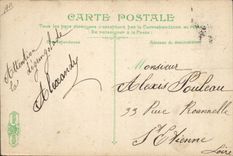 CARTE POSTALE
Tous les pays étrangers n'acceptent pas la Correspondance au
Se renseigner à la Poste
Correspondance
Attention
la
A Lexandry
Monsieur
Alexis Pouleau
33 Rue Roannelle
St Etienne
Loire